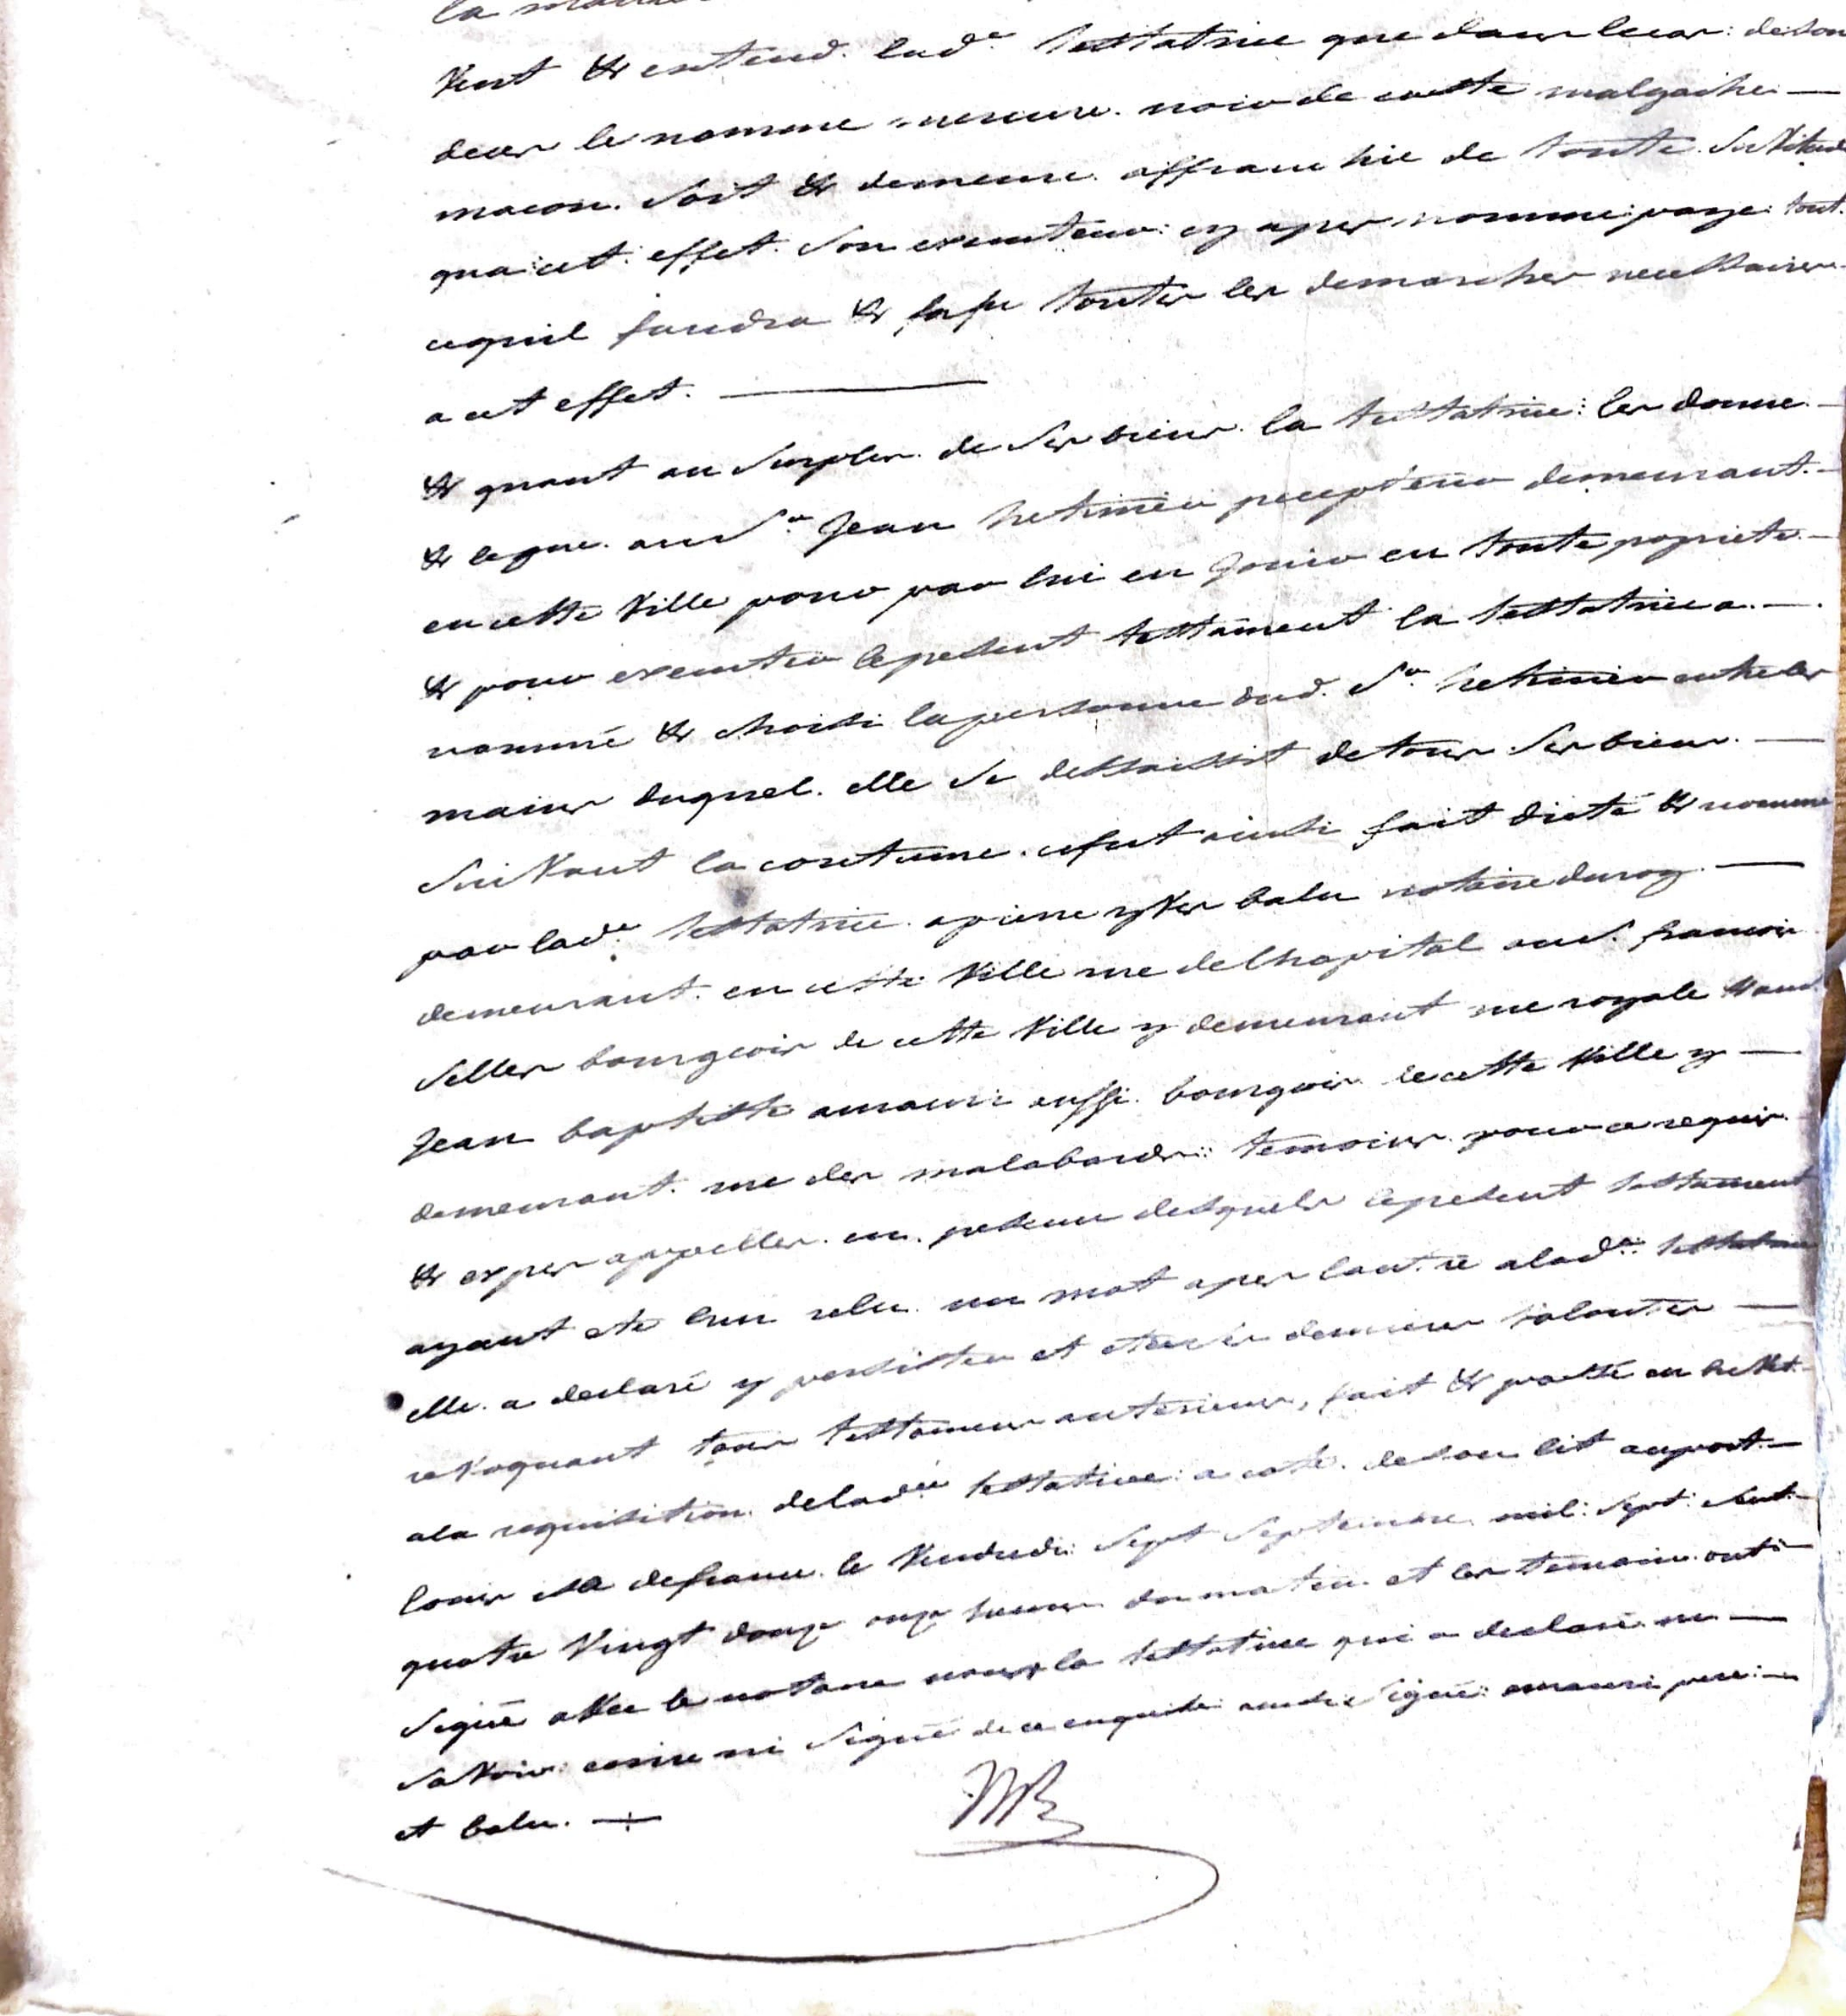 la
Veut & entend. lad.e testatrice que dans le cas: de son
deces le nomme mercure. noir de caste malgache. —
macon. soit & demeure. affranchie de toute. servitude
qua: cet: effet. son executeur: cy apres nomme: paye: tout.
cequil faudra & fasse toutes les demarches necessaires
a cet effet. —
& quant au surplus. de ses biens. la testatrice: les donne. —
& legue. au S.r Jean precepteur demeurant. —
en cette Ville pour par lui en jouir en toute propriete. —
& pour executer lepresent testament la testatrice a. —
nommé & choisi lapersonne dud. S.r entre les
mains duquel. elle se dessaisit de tous ses biens. —
suivant la coutume. cefut ainsi fait dicté & nomme
par lad.e testatrice. apierre yves balu notaire duroy. —
demeurant. en cette Ville rue delhopital aud. francois
selles bourgeois de cette Ville y demeurant rue royale &
Jean baptiste amauri aussi. bourgois. de cette Ville y —
demeurant. rue des malabards:: temoins. pour ce requis.
& expres appelles. en. presence desquels lepresent testament
ayant ete leu relu. un mot apres lautre alad.e: testatrice
elle. a declaré y persister et etre ses dernieres volontes —
revoquant tous testamens anterieurs, fait & passé en brevet. —
ala requisition. delad.e testatrice: a coté. deson lit auport. —
louis isle defrance. le Vendredi: sept septembre. mil: sept: cent. —
quatre Vingt douze onze heures du matin. et les temoins. ont: —
signé avec le notaire non la testatrice qui a declaré. ne —
savoir: ecrire ni signé: de ce enquise: ainsi signé: amauri pere: —
et balu. —